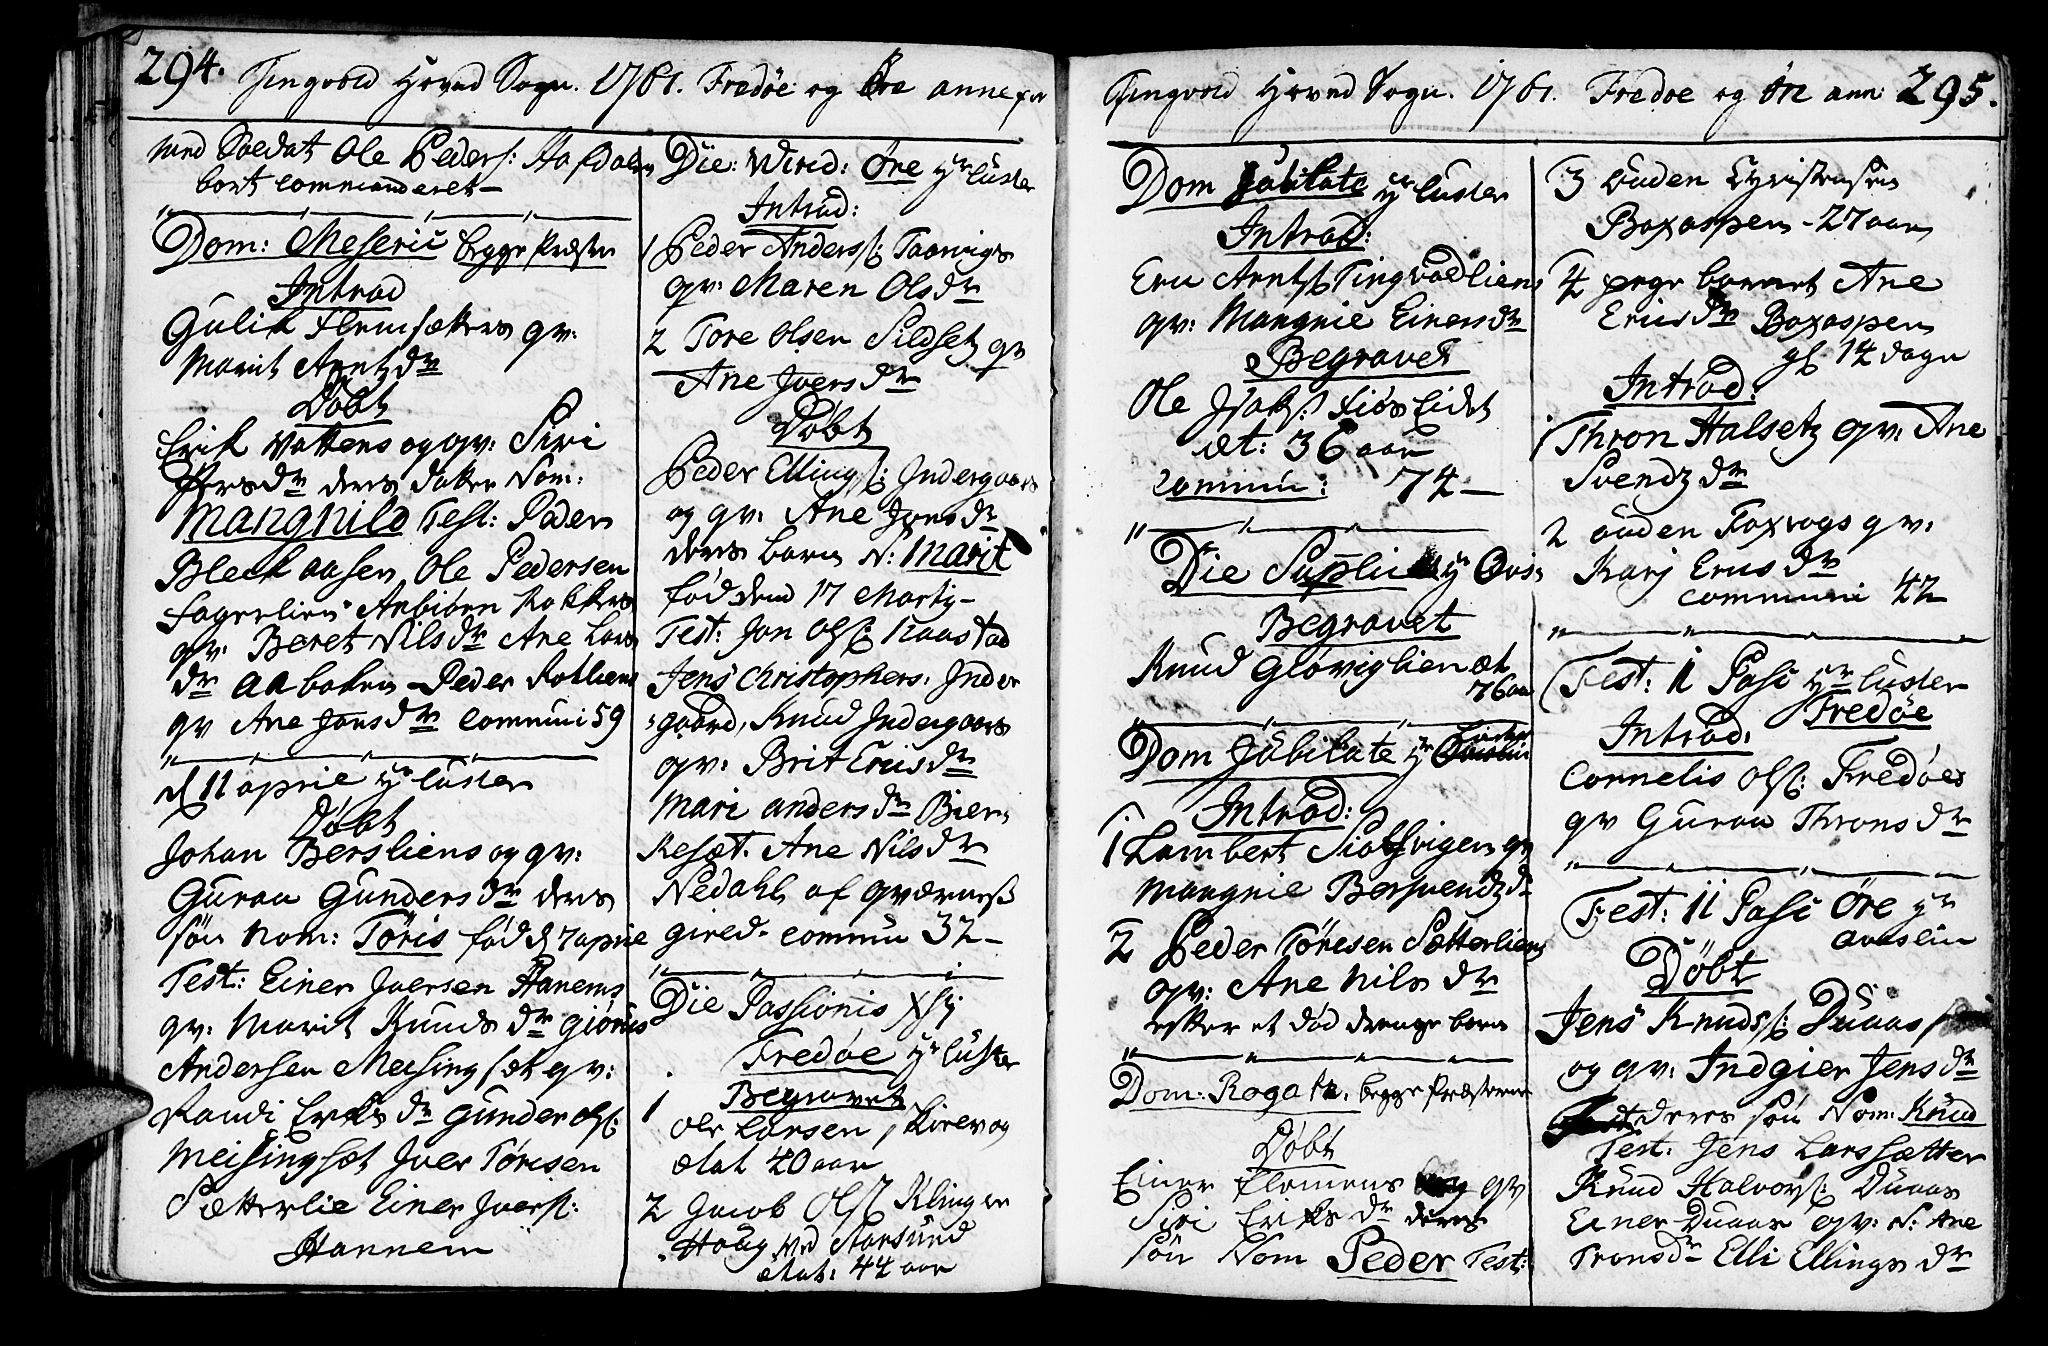 294. Tingvold Hoved Sogn. 1761. Fredøe og Øre annexer
med Soldat Ole Peders: Hafdalen
bort commanderet
Dom: Meseric begge Præster
Introd
Gulik Flemsætters qv:
Marit Arntzdr
Døbt
Erik Vattens og qv: Siri
Iversdr deres datter Nom:
Mangnild Test: Peder
Bleckaasen Ole Pedersen
Fagerlien Anbiørn Kakkens
qv. Beret Nilsdr Ane Lars
dr Aabaken Peder Rotliens
qv Ane Jonsdr communi 59
d 11 aprie Hr Luster
Døbt
Johan Bersliens og qv:
Guraa Gundersdr deres
søn Nom: Tøris fød d 7 aprie
Test: Einer Iversen Hanems
qv: Marit Knudsdr Giøriis
Andersen Meisingset qv:
Randi Eriksdr Gunder Ols:
Meisingset Iver Tøresen
Sætterlie Einer Ivers:
Hannem
Die: Virid: Øre Hr Luster
Introd:
1 Peder Anders: Taarvigs
qv: Maren Olsdr
2 Tore Olsen Sildset qv
Ane Iversdr
Døbt
Peder Ellings: Indergaars
og qv: Ane Jonsdr
deres barn N: Marit
fød den 17 Marty
Test: Jon Ols: Naastad
Jens Christophers: Inder
gaard, Knud Indergaars
qv: Brit Ericsdr
Mari andersdr Bier
Keset. Ane Nilsdr
Nedahl af qværness
gield. commun 32
Die Passionis Xsti
Fredøe Hr Luster
Begravet
1 Ole Larsen
ætat 40 aar
2 Jacob Ols: Klinger
Haug ved Starsund
ætat: 44 aar
Tingvold Hoved Sogn. 1761. Fredøe og Øre ann: 295.
Dom Jubilate Hr Luster
Introd:
Eric Arnts: Tingvoldliens
qv: Mangnie Einersdr
Begravet
Ole Isaks: Fiøseidet
æt: 36 aar
commun: 74
Die Supplic Hr Ovis:
Begravet
Knud Gloviglien æt
76 aar
Dom Jubilate Hr
Introd:
1 Lambert Siolsvigen qv
Mangnie Bersvendzdr
2 Peder Tøresen Sætterliens
qv: Ane Nilsdr
efter et død drenge barn
Dom: Rogate. begge Præsterne
Døbt
Einer Flemens qv
Siri Eriksdr deres
søn Nom Peder Test:
3 Auden Christensen
Boxaspen 27 aar
4 pige barnet Ane
Ericsdr Boxaspen
gl 14 dage
Introd:
1 Thron Halsetz qv: Ane
Svendzdr
2 Auden Foxvogs qv:
Karj Ericsdr
communi 42
Fest: 1 Pasc Hr Luster
Fredøe
Introd:
Cornelis Ols: Fredøes
qv Guraa Thronsdr
Fest: 11 Pasc Øre Hr
Aveslin
Døbt
Jens Knuds: Duaas
og qv: Indgier Jensdr
deres søn Nom: Knud
Test: Jens Larssætter
Knud Halvors: Duaas
Einer Duaas qv: N: Ane
Tronsdr Elli Ellingsdr